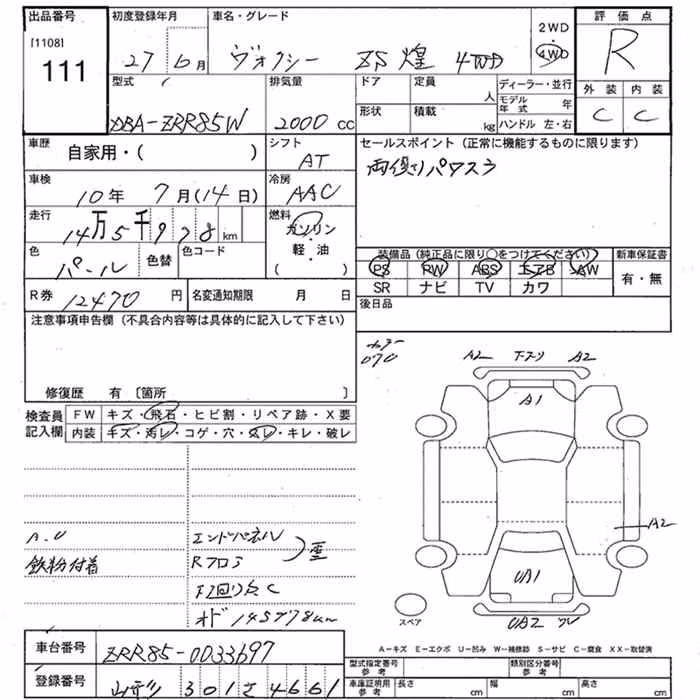 出品番号
[1108]
111
初度登録年月
27 6月
車名・グレード
ヴォクシー ZS 煌 4WD
2WD
・
4WD
評価点
R
外装 内装
C C
型式
DBA-ZRR85W
排気量
2000 cc
ドア
定員
人
形状
積載
kg
ディーラー・並行
モデル年式 年
ハンドル 左・右
車歴
自家用・( )
シフト
AT
車検
10年 7月(14日)
冷房
AAC
走行
14万5千978km
燃料
ガソリン
・
軽・油
( )
色
パール
色替
色コード
セールスポイント (正常に機能するものに限ります)
両側パワスラ
装備品 (純正品に限り○をつけてください)
PS RW ABS エアB AW
SR ナビ TV カワ
新車保証書
有・無
R券 12470円
名変通知期限 月 日
後日品
注意事項申告欄 (不具合内容等は具体的に記入して下さい)
修復歴 有 〔箇所 〕
カラー
070
検査員
記入欄
FW キズ・飛石・ヒビ割・リペア跡・X要
内装 キズ・汚レ・コゲ・穴・スレ・キレ・破レ
A2 A2
A1
A2
UA1
UA2
スペア
鉄粉付着
エンドパネル
Rフロア
下回り
オド 145978km
A-キズ E-エクボ U-凹み W-補修跡 S-サビ C-腐食 XX-取替済
車台番号 ZRR85-0033697
登録番号 301 さ 4661
型式指定番号
参考
類別区分番号
参考
車庫証明用
参考
長さ cm
幅 cm
高さ cm